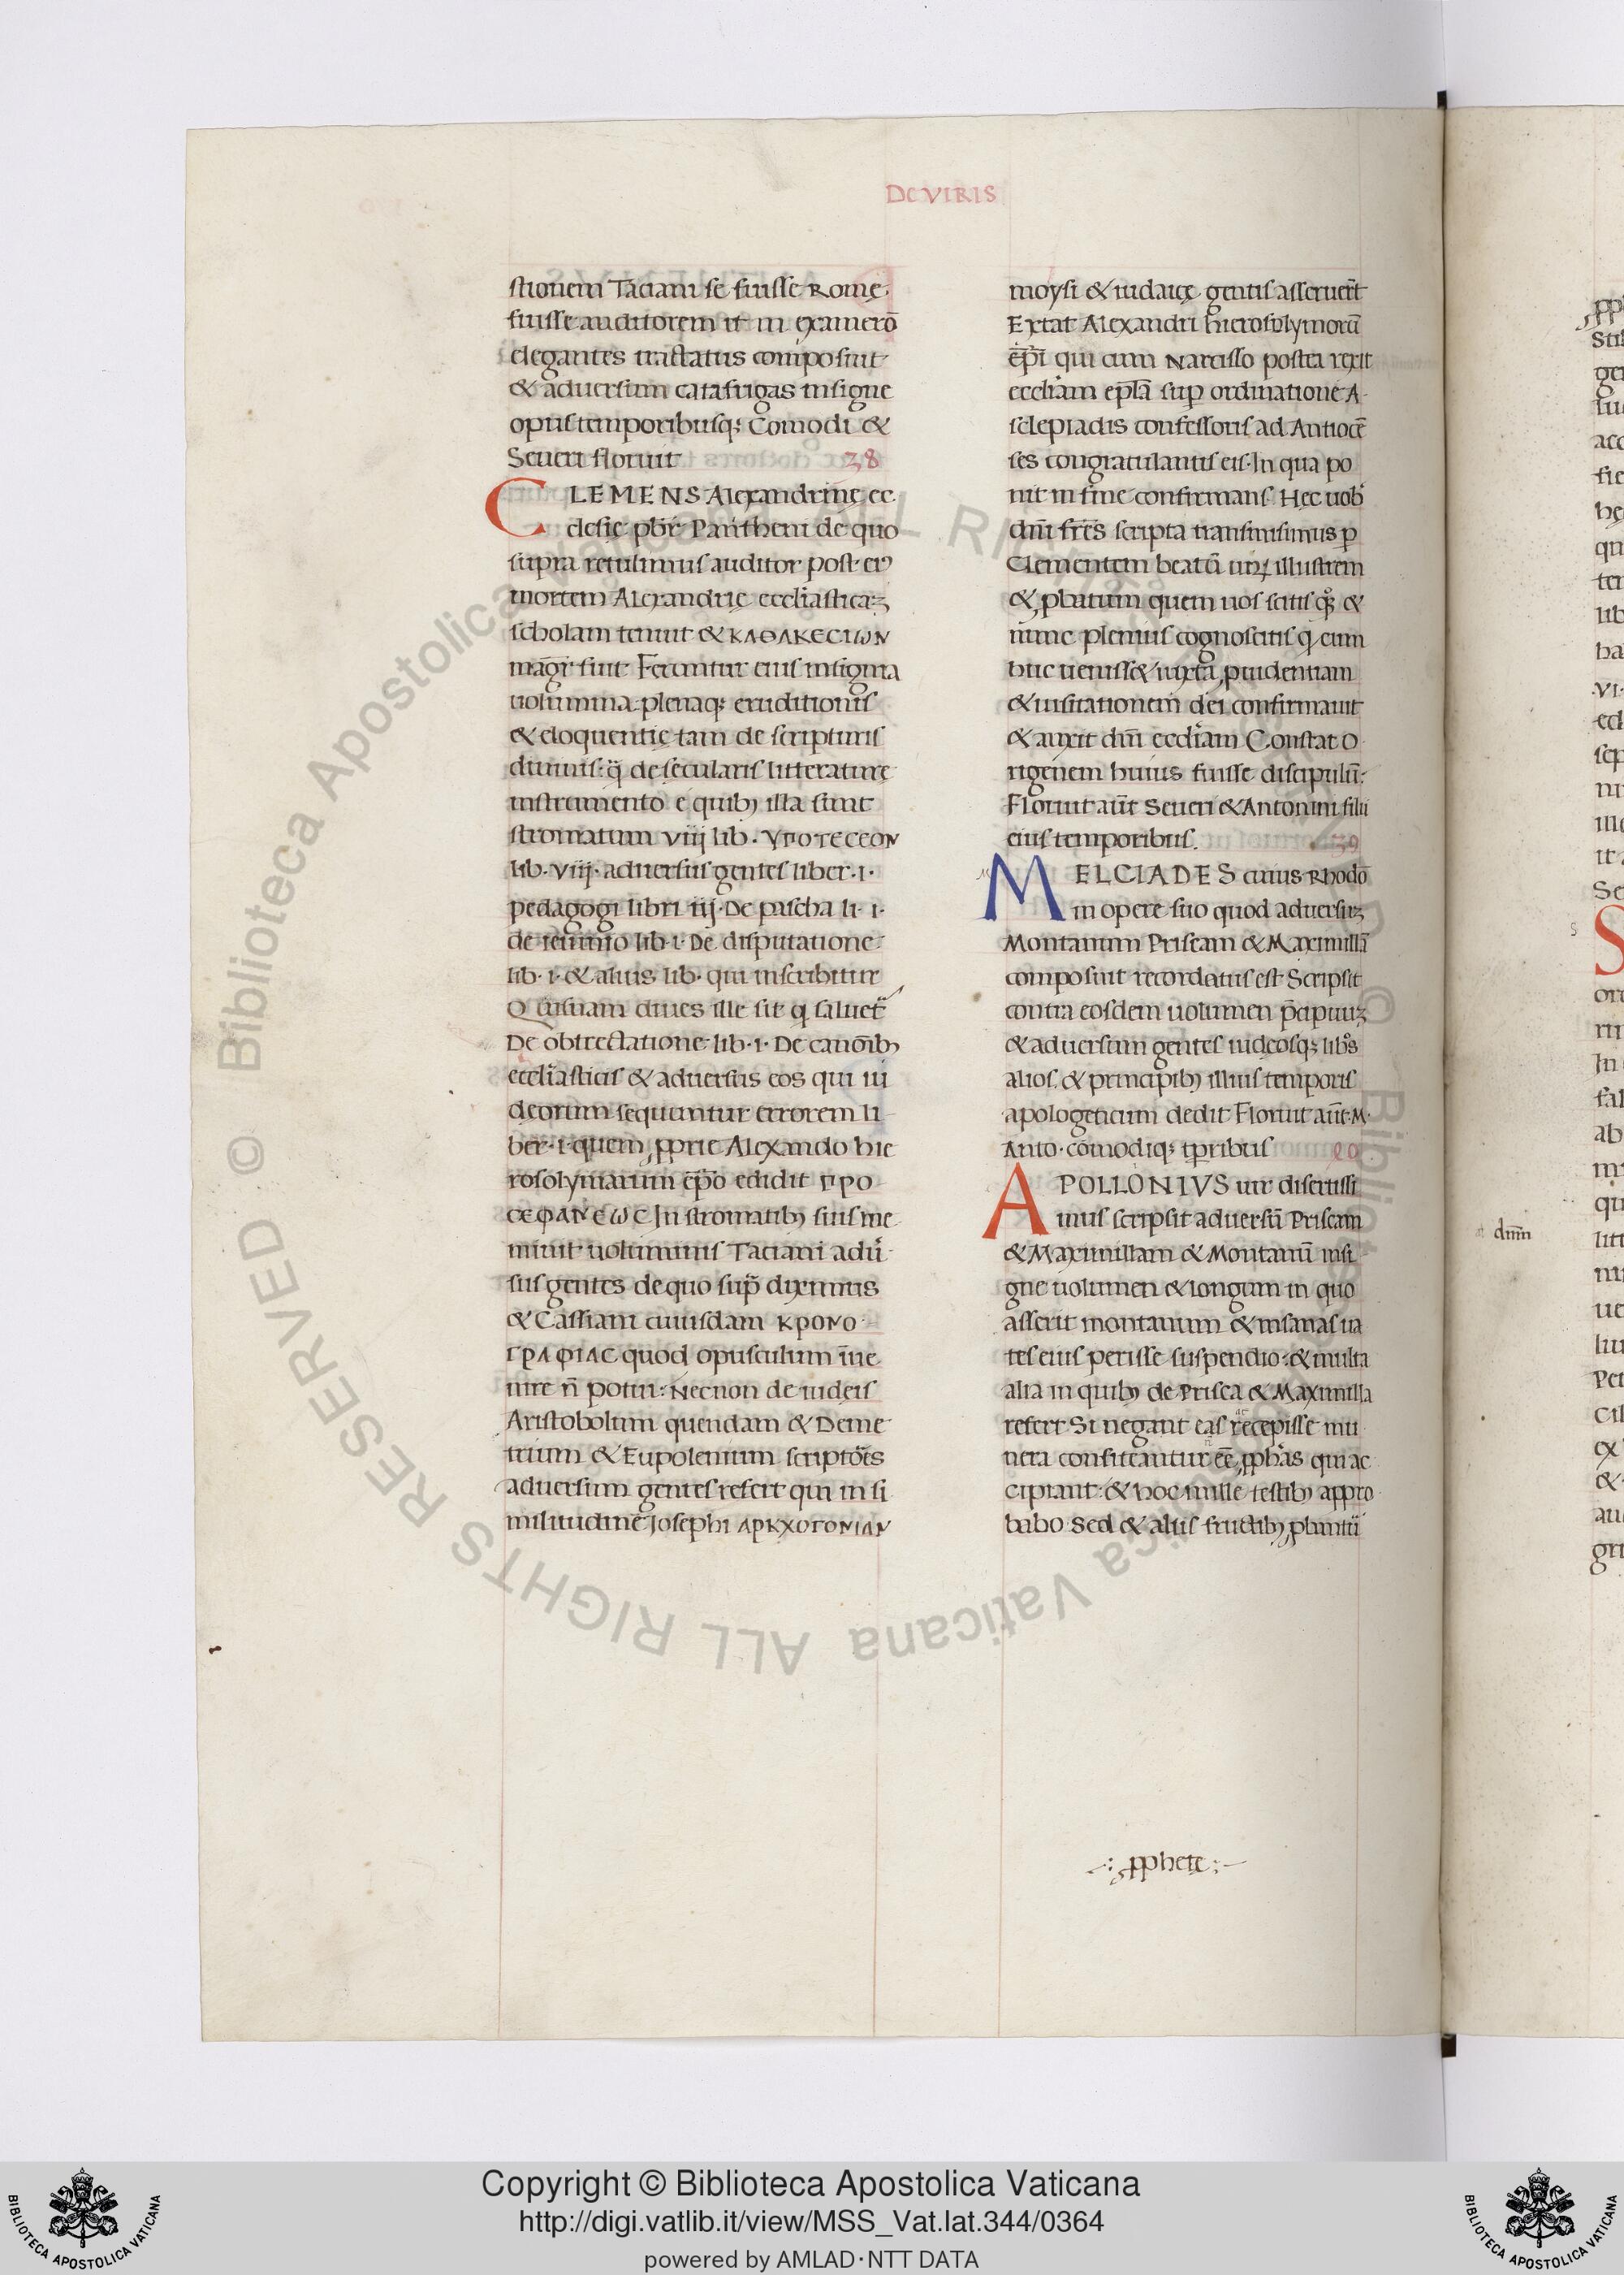 DE VIRIS
stionem Taciani se fuisse Romę
fuisse auditorem it in examerō
elegantes tractatus composuit
& aduersum catafrigas insigne
opus temporibusq; Comodi &
Seueri floruit 38
CLEMENS Alexandrinę ec
clesię pb̄r Pantheni de quo
supra retulimus auditor post eiꝰ
mortem Alexandrię eccliasticaꝫ
scholam tenuit & ΚΑΘΑΚΕCΙΩΝ
māgr fuit Feruntur eius insignia
uolumina plenaq; eruditionis
& eloquentię tam de scripturis
diuinis: q̄ de secularis litterature
instrumento e quibꝫ illa sunt
stromatum viij lib. ΥΠΟΤΕCΕΟΝ
lib. viij. aduersus gentes liber .i.
pedagogi libri iij. De pascha li .i.
de ieiunio lib .i. De disputatione
lib .i. & alius lib. qui inscribitur
Quisnam diues ille sit q saluet᷑
De obtrectatione lib .i. De canōibꝫ
eccliasticis & aduersus eos qui iu
deorum sequuntur errorem li
ber .i. quem ꝓprie Alexando hie
rosolymarum ep̄o edidit ΠΡΟ
CΕΦΑΝΕΩC In stromatibꝫ suis me
minit uoluminis Taciani adū
sus gentes de quo sup̄ diximus
& Cassiani cuiusdam ΚΡΟΝΟ
ΓΡΑΦΙΑC quod opusculum īue
nire n̄ potui: Necnon de iudeis
Aristobolum quendam & Deme
trium & Eupolemum scriptōes
aduersum gentes refert qui in si
militudinē Iosephi ΑΡΚΧΟΓΟΝΙΑΝ
moysi & iudaicę gentis asseruer̄t
Extat Alexandri hierosolymorū
ep̄i qui cum Narcisso postea rexit
eccliam ep̄lā sup̱ ordinatione A
sclepiadis confessoris ad Antiocē
ses congratulantis eis. In qua po
nit in fine confirmans Hec uob̄
dn̄i frēs scripta transmisimus ꝑ
Clementem beatū uirꝫ illustrem
& ꝓbatum quem uos scitis qꝫ &
nunc plenius cognoscitis q cum
huc uenisset iuxta ꝓuidentiam
& uisitationem dei confirmauit
& auxit dn̄i eccliam Constat O
rigenem huius fuisse discipulū:
Floruit aūt Seueri & Antonini filii
eius temporibus. 39
MELCIADES cuius Rhodō
in opere suo quod aduersuꝫ
Montanum Priscam & Maximillā
composuit recordatus est Scripsit
contra eosdem uolumen p̄cipuuꝫ
& aduersum gentes iudęosq; lib̄s
alios. & principibꝫ illius temporis
apologeticum dedit Floruit aūt. M.
Anto. cōmodiq; tꝑribus 40
APOLLONIVS uir disertissi
mus scripsit aduersū Priscam
& Maximillam & Montanū insi
gne uolumen & longum in quo
asserit montanum & insanas ua
tes eius perisse suspendio: & multa
alia in quibꝫ de Prisca & Maximilla
refert Si negant eas recepisse mu
nera confiteantur eē ꝓphas qui ac
cipiant: & hoc mille testibꝫ appro
babo Sed & aliis fructibꝫ ꝓbantū
ꝓphete
dm̄n
Copyright © Biblioteca Apostolica Vaticana
http://digi.vatlib.it/view/MSS_Vat.lat.344/0364
powered by AMLAD·NTT DATA
BIBLIOTECA APOSTOLICA VATICANA
BIBLIOTECA APOSTOLICA VATICANA
© Biblioteca Apostolica Vaticana ALL RIGHTS RESERVED
© Biblioteca Apostolica Vaticana ALL RIGHTS RESERVED